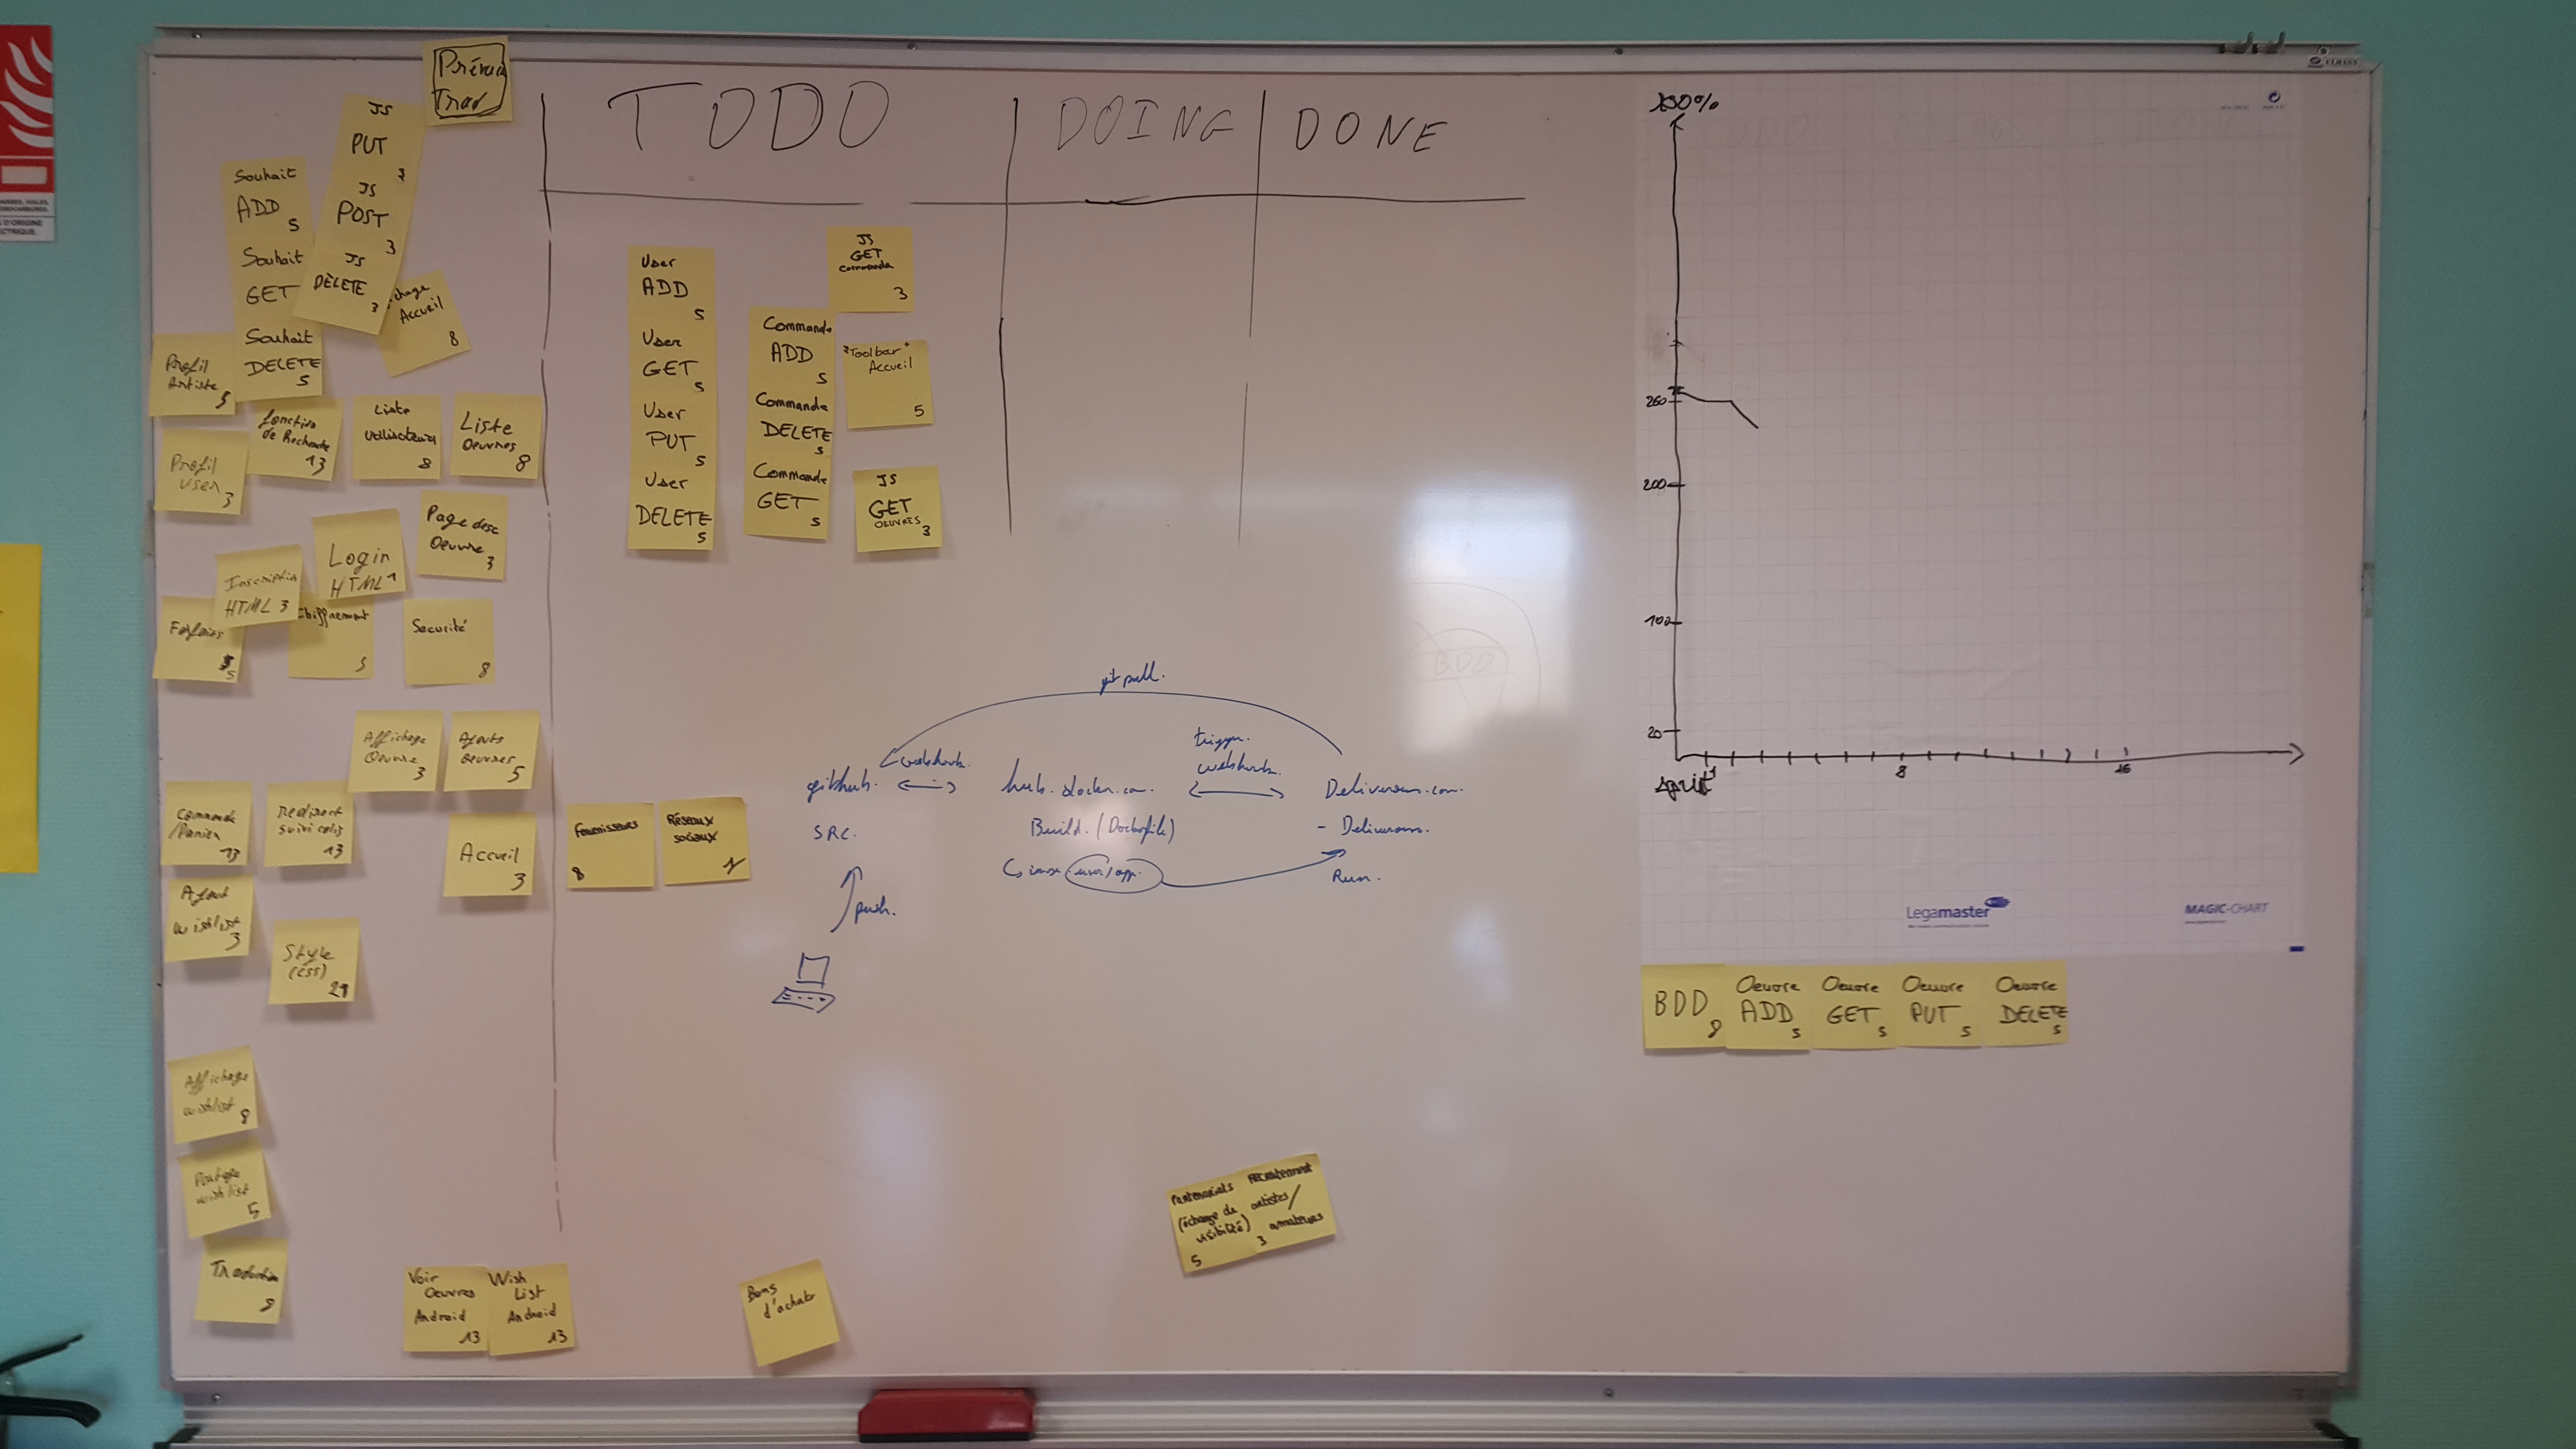 TODO
DOING
DONE
JS
PUT
3
JS
POST
3
JS
DÈLETE
3
Souhait
ADD
5
Souhait
GET
Souhait
DELETE
5
Accueil
8
Profil
Artiste
5
fonction
de Recherche
13
Liste
utilisateurs
8
Liste
Oeuvres
8
Profil
User
3
Page desc
Oeuvre
3
Login
HTML 1
Inscription
HTML 3
Chiffrement
5
Forfaits
5
Securité
8
Affichage
Oeuvre
3
Ajouts
Oeuvres
5
Commande
/Panier
13
redirect
suivi colis
13
Accueil
3
Ajout
wishlist
3
Style
(css)
21
Affichage
wishlist
8
Partage
wishlist
5
Traduction
8
Voir
Oeuvres
Android
13
Wish
List
Android
13
User
ADD
5
User
GET
5
User
PUT
5
User
DELETE
5
Commande
ADD
5
Commande
DELETE
5
Commande
GET
5
JS
GET
commande
3
"Toolbar"
Accueil
5
JS
GET
OEUVRES
3
Fournisseurs
8
Réseaux
sociaux
1
git pull.
webhook.
trigger.
webhook.
github.
hub.docker.com.
SRC.
Build. (Dockerfile)
Run.
push.
Bons
d'achats
Partenariats
(échange de
visibilité)
5
Recrutement
artistes/
amateurs
3
100%
260
200
100
20
Sprint
1
8
16
Legamaster
MAGIC-CHART
BDD
8
Oeuvre
ADD
5
Oeuvre
GET
5
Oeuvre
PUT
5
Oeuvre
DELETE
5